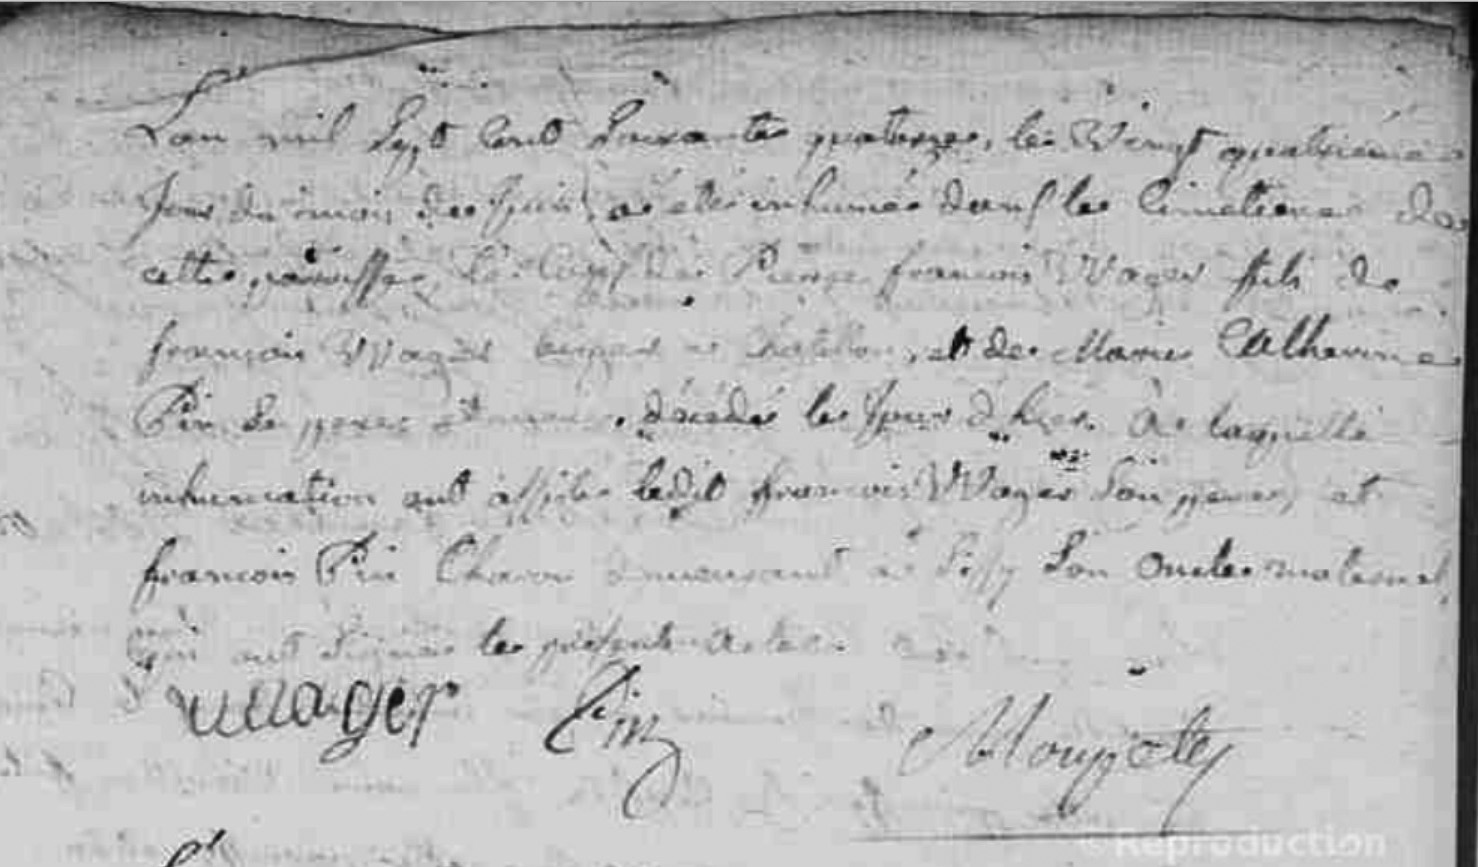 L'an mil Sept Cent Soixante quatorze, le Vingt quatrieme
Jour du mois de Juin a été inhumé dans le Cimetiere de
cette paroisse, le Corps de Pierre françois Wager fils de
françois Wager berger a Chatillon, et de Marie Catherine
Pin Se pere et mere, décédé le Jour d'hier. A laquelle
inhumation ont assisté ledit françois Wager Son pere, et
francois Pin Charon demeurant a Sissy Son oncle maternel,
qui ont Signé le présent acte.
wager Pin
© Reproduction